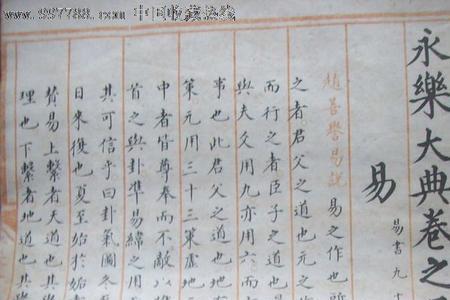 www.997788.com 中国收藏热线
永樂大典卷之
易
易書九十
趙善譽易說 易之作也
之者君父之道也元之
而行之者臣子之道也
與夫乂用九亦用六而
事也此君父之道也地
策元用三十三策虛地
中者皆尊奉而不敵
首之與卦準易緯之用
其可信乎曰卦氣圖冬
日來復也夏至始於姤
贊易上繫者天道也其
理也下繫者地道也其